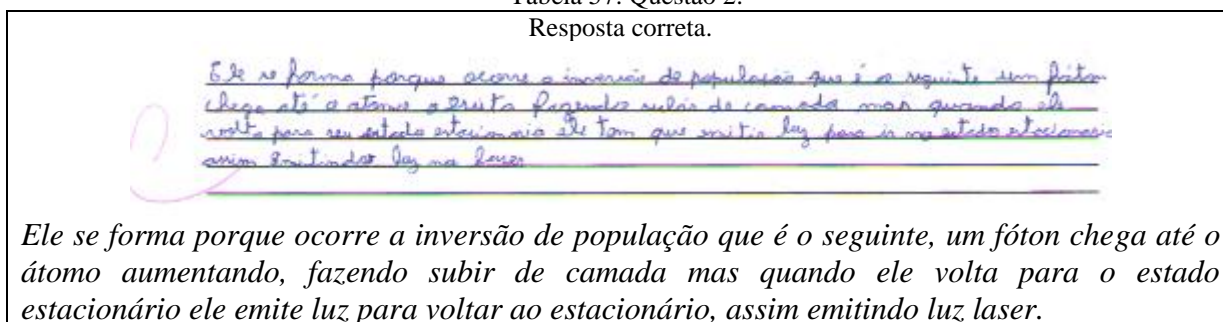 Tabela 37: Questão 2.
Resposta correta.
Ele se forma porque ocorre a inversão de população que é o seguinte, um fóton
chega até o atomo o exita fazendo subir de camada mas quando ele
volta para seu estado estacionario ele tem que emitir luz para ir no estado estacionario
assim emitindo luz no laser
Ele se forma porque ocorre a inversão de população que é o seguinte, um fóton chega até o
átomo aumentando, fazendo subir de camada mas quando ele volta para o estado
estacionário ele emite luz para voltar ao estacionário, assim emitindo luz laser.